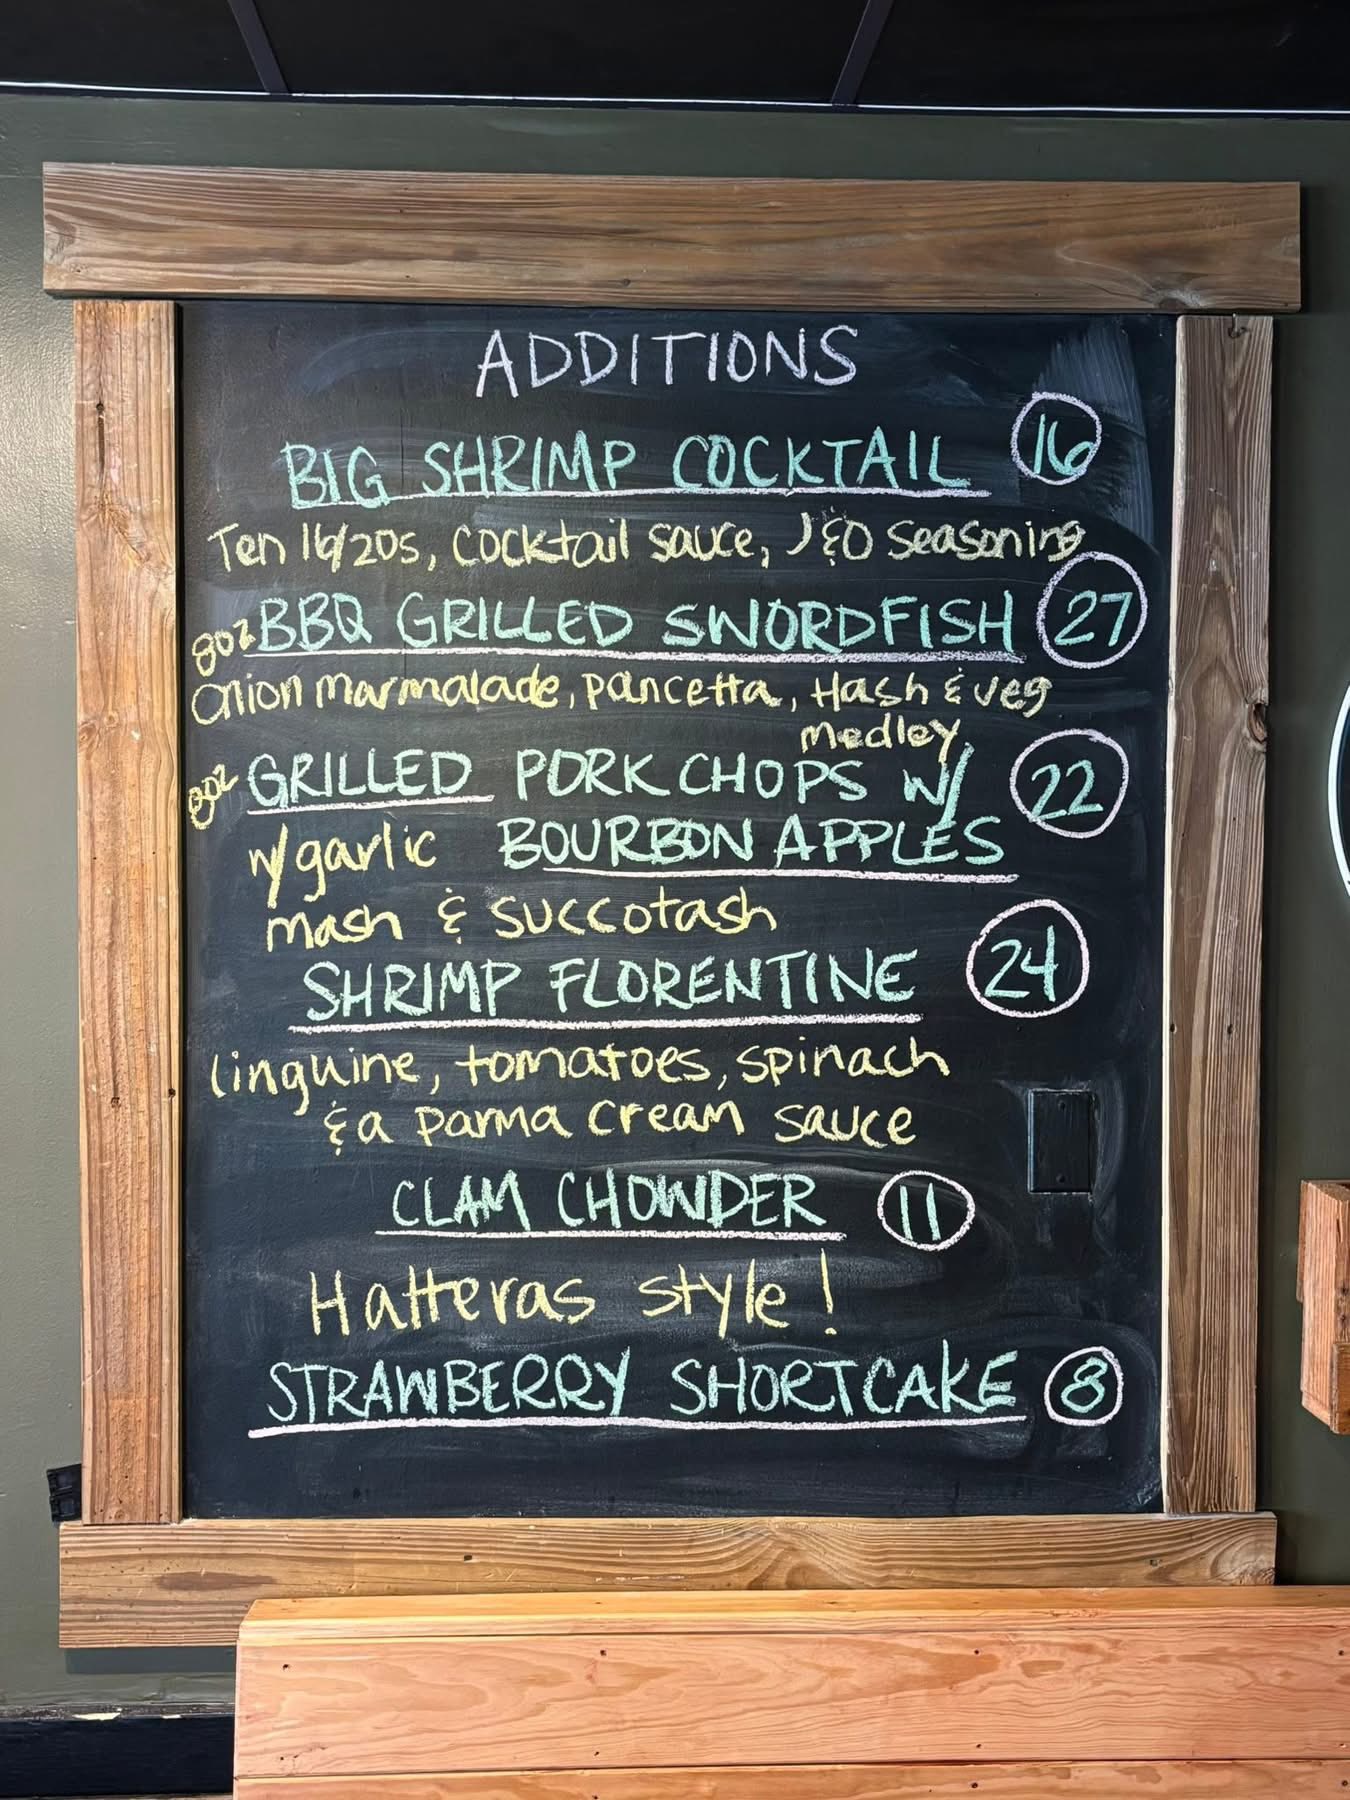 ADDITIONS
BIG SHRIMP COCKTAIL 16
Ten 16/20s, cocktail sauce, J&O seasoning
8oz BBQ GRILLED SWORDFISH 27
onion marmalade, pancetta, Hash & veg
medley
8oz GRILLED PORK CHOPS w/ 22
w/ garlic BOURBON APPLES
mash & succotash
SHRIMP FLORENTINE 24
linguine, tomatoes, spinach
& a parma cream sauce
CLAM CHOWDER 11
Hatteras style!
STRAWBERRY SHORTCAKE 8